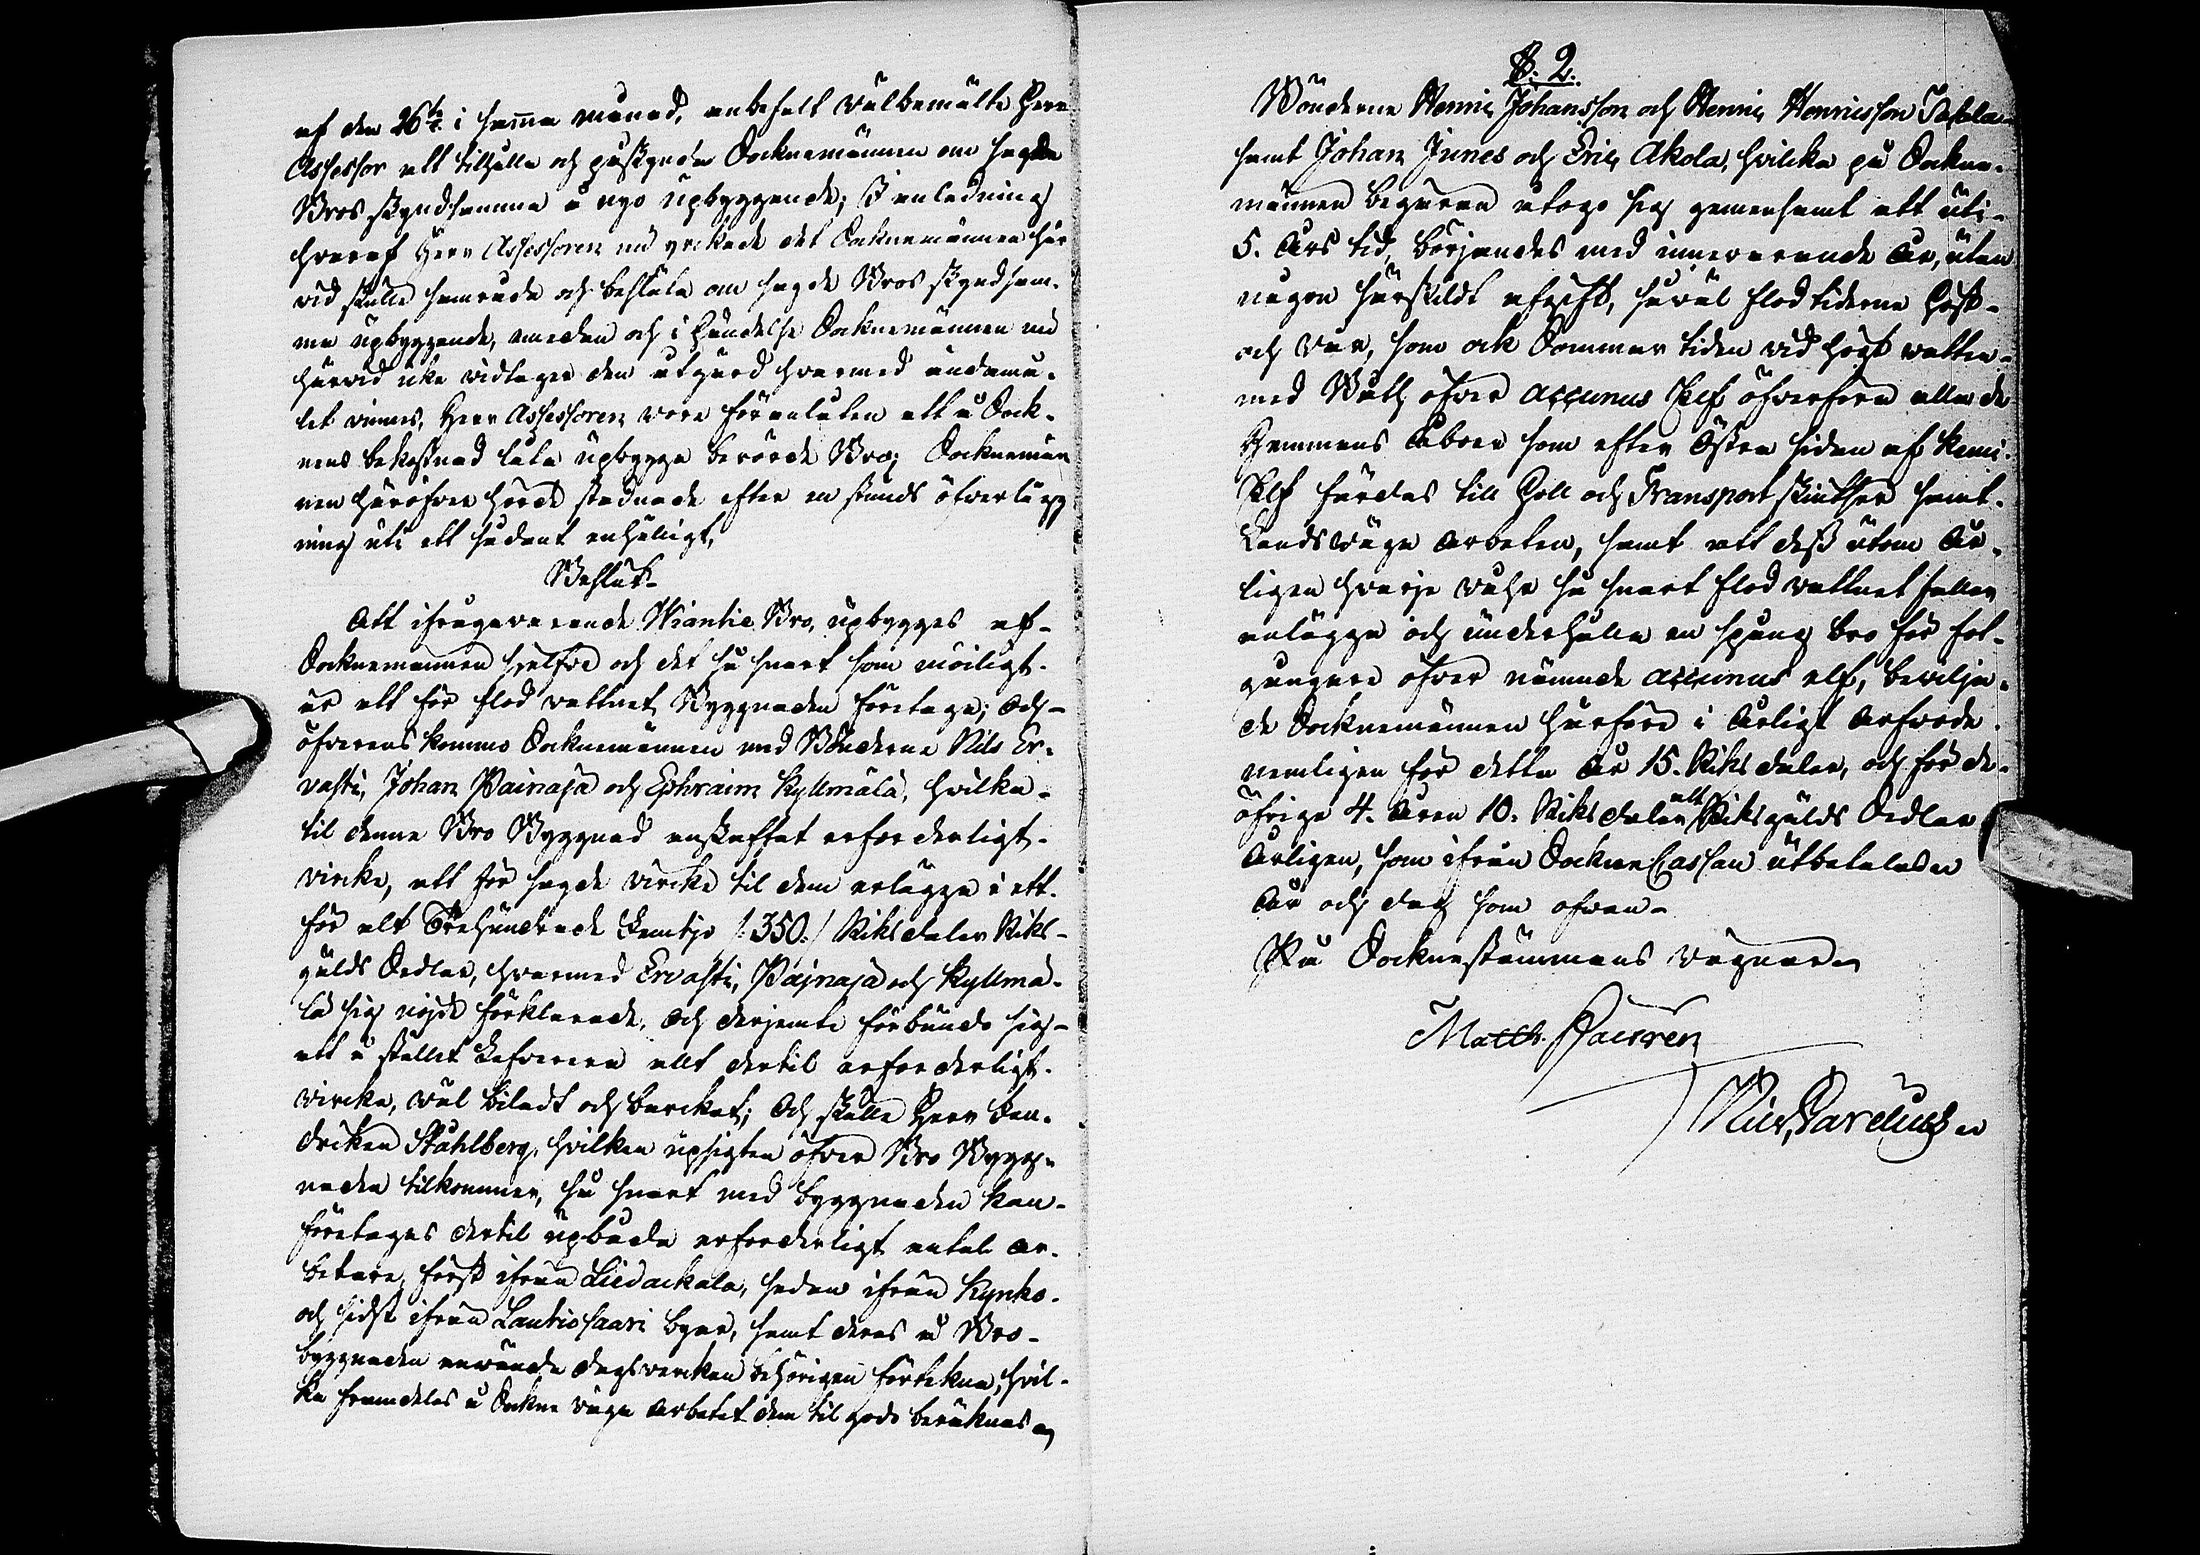 af den 26te i samma månad, anbefalt välbemälte Herr
Assessor att tilhålla och påskynda Socknemännen om sagde
Bros skyndsamma å nyo upbyggande; I anledning
hvaraf Herr Assessoren nu yrkade det Soknemännen här
vid skulle samråda och besluta om sagde Bros skyndsam-
ma upbyggande, emedan och i händelse Socknemännen nu
härvid icke vidtager den utgård hvarmed ändamå-
let vinnes, Herr Assessoren vore föranlåten att å Sock-
nens bekostnad låta upbygga berörde Bro; Socknemän
nen häröfver hörde stadnade efter en stunds öfverlägg
ning uti ett sådant enhälligt,
Beslut-
Att ifrågavarande Wiantie Bro, upbygges af-
Socknemännen sjelfve och det så snart som möiligt-
är att för flod vattnet Byggnaden företaga; Och-
öfverens kommo Socknemännen med Bönderne Nils Er-
vasti, Johan Painaja och Ephraim Kyllmälä, hvilka-
til denna Bro Byggnad anskaffat erforderligt-
virke, att för sagde virke til dem erlägga i ett-
för alt Trehundrade femtijo /:350:/ Riksdaler Riks-
gälds Sedlar, hvarmed Ervasti, Pajnaja och Kyllmä-
lä sig nöjde förklarade, Och derjemte förbundo sig-
att å stället Lefverera allt dertil erforderligt-
virke, väl biladt och barckat; Och skulle Herr Fen-
dricken Ståhlberg, hvilken upsigten öfver Bro Bygg-
naden tilkommer, så snart med byggnaden kan-
företagas dertil upbåda erforderligt antal ar-
betare, först ifrån Liedackala, sedan ifrån Kynko-
och sidst ifrån Lautiosaari byar, samt deras vid Bro-
byggnaden använde dagsverken behörigen förtekna, hvil-
ka framdeles å Sockne väga arbetet dem til godo beräknas
§. 2.
Bönderne Henric Johansson och Henric Henricsson
samt Johan Junes och Eric Akola, hvilka på Sockne-
männen begäran åtogo sig gemensamt att uti-
5. Års tid, börjandes med innevarande År, utan
någon särskildt afgift, såväl flodtiderne Höst-
och Vår, som ock Sommar tiden vid högt vatten-
med Båth öfver Accunus Elf öfverföra alla de
Hemmans Åboer som efter Östra sidan af Kemi-
Elf färdas till Håll och Transport skiutser samt-
Landsvägs arbeten, samt att dess utom År-
ligen hvarje så snart flod vattnet faller
anlägga och underhålla en spång bro för fot-
gångare öfver nämnde Accunus elf, bevilja-
de Socknemännen härföre i Årligt Arfvode-
nemligen för detta År 15. Riksdaler, och för de-
öfrige 4. Åren 10. Riksdaler alt Riksgälds Sedlar
Årligen, som ifrån Sockne Cassan utbetalas
År och dag som ofvan-
På Socknestämmans vägnar
Matth.